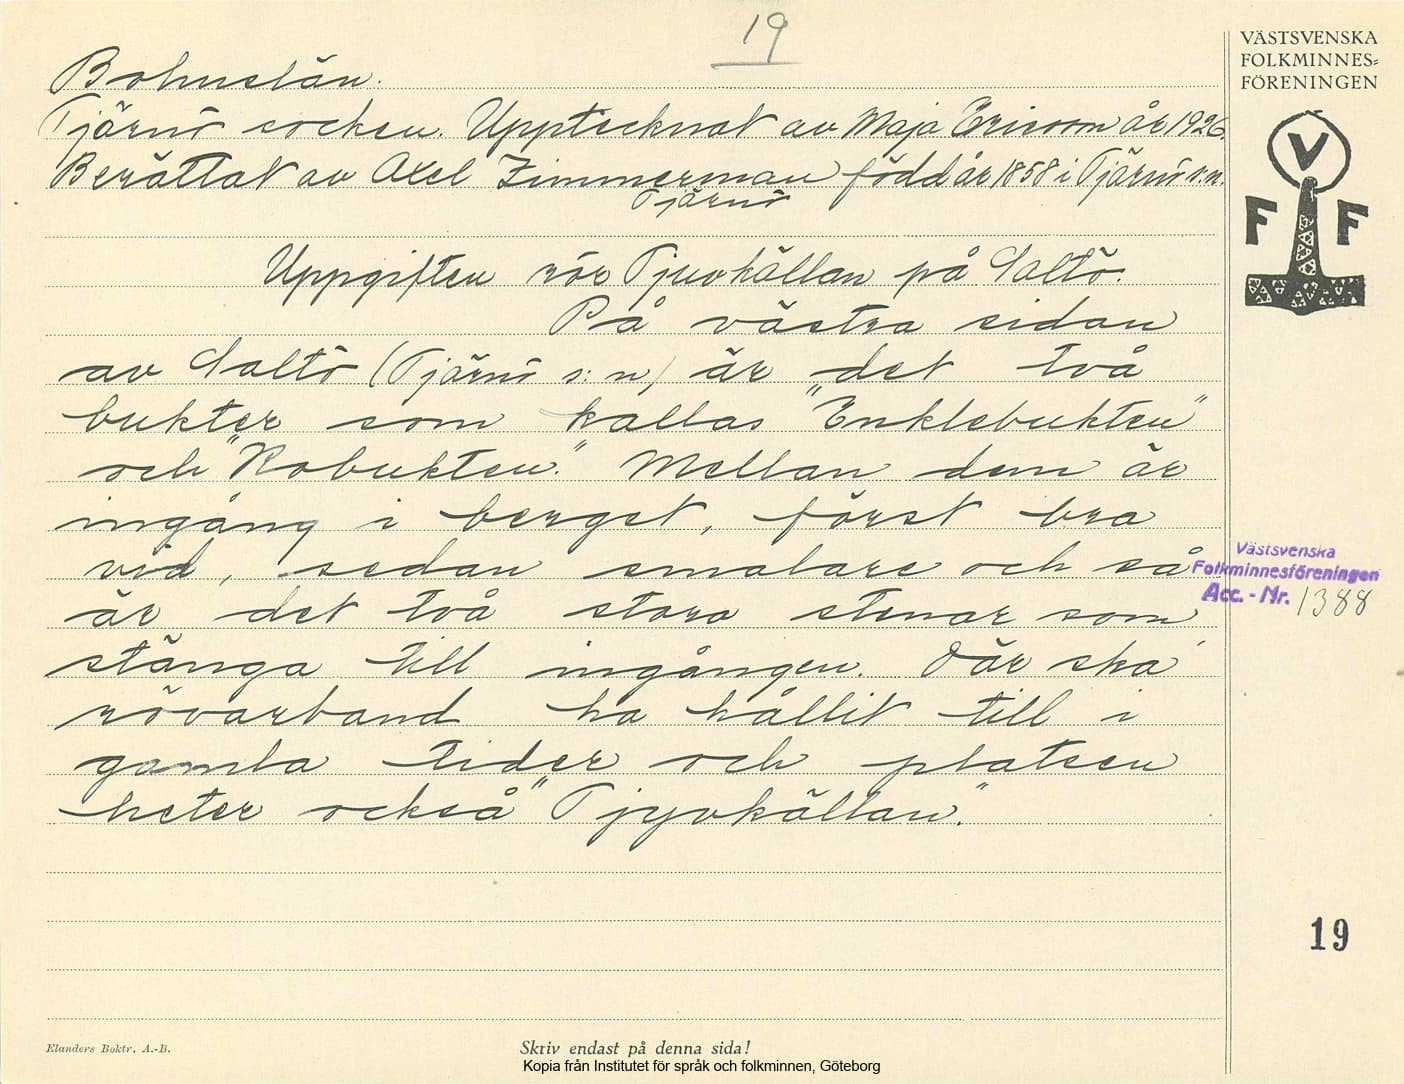 19
VÄSTSVENSKA
FOLKMINNES=
FÖRENINGEN
V
F F
Bohuslän.
Tjärnö socken. Upptecknat av Maja Ericson år 1926.
Berättat av Axel Zimmerman född år 1858 i Tjärnö s.n.
Tjärnö
Uppgiften rör Tjuvkällan på Saltö.
På västra sidan
av Saltö (Tjärnö s:n) är det två
bukter som kallas "Enklebukten"
och "Robukten." Mellan dem är
ingång i berget, först bra
vid, sedan smalare och så
är det två stora stenar som
stänga till ingången. Där ska
rövarband ha hållit till i
gamla tider och platsen
heter också "Tjyvkällan."
Västsvenska
Folkminnesföreningen
Acc. - Nr. 1388
19
Elanders Boktr. A.-B.
Skriv endast på denna sida!
Kopia från Institutet för språk och folkminnen, Göteborg